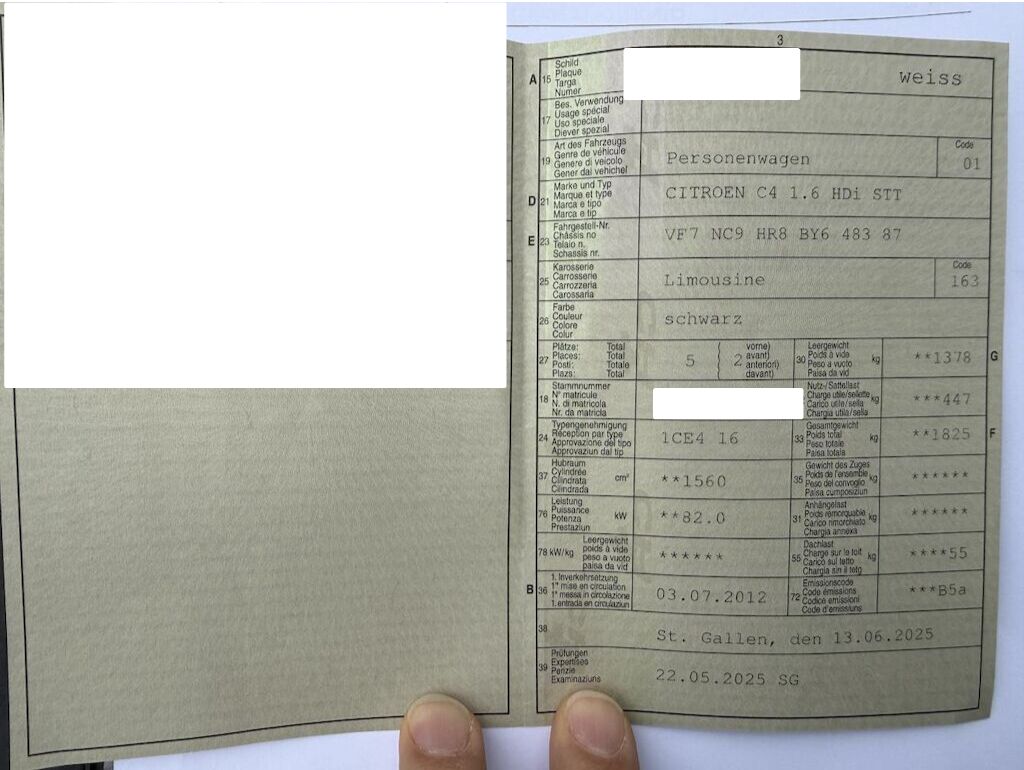 3
A 15 Schild
Plaque
Targa
Numer
weiss
17 Bes. Verwendung
Usage spécial
Uso speciale
Diever spezial
19 Art des Fahrzeugs
Genre de véhicule
Genere di veicolo
Gener dal vehichel
Personenwagen
Code
01
D 21 Marke und Typ
Marque et type
Marca e tipo
Marca e tip
CITROEN C4 1.6 HDi STT
E 23 Fahrgestell-Nr.
Châssis no
Telaio n.
Schassis nr.
VF7 NC9 HR8 BY6 483 87
25 Karosserie
Carrosserie
Carrozzeria
Carossaria
Limousine
Code
163
26 Farbe
Couleur
Colore
Colur
schwarz
27 Plätze: Total
Places: Total
Posti: Totale
Plazs: Total
5 ( 2 vorne)
avant)
anteriori)
davant)
30 Leergewicht
Poids à vide
Peso a vuoto
Paisa da vid
kg **1378 G
18 Stammnummer
N° matricule
N. di matricola
Nr. da matricla
Nutz-/Sattellast
Charge utile/sellette
Carico utile/sella
Chargia utila/sella
kg ***447
24 Typengenehmigung
Réception par type
Approvazione del tipo
Approvaziun dal tip
1CE4 16
33 Gesamtgewicht
Poids total
Peso totale
Paisa totala
kg **1825 F
37 Hubraum
Cylindrée
Cilindrata
Cilindrada
cm³ **1560
35 Gewicht des Zuges
Poids de l'ensemble
Peso del convoglio
Paisa cumposiziun
kg ******
76 Leistung
Puissance
Potenza
Prestaziun
kW **82.0
31 Anhängelast
Poids remorquable
Carico rimorchiato
Chargia annexa
kg ******
78 kW/kg Leergewicht
poids à vide
peso a vuoto
paisa da vid
******
55 Dachlast
Charge sur le toit
Carico sul tetto
Chargia sin il tetg
kg ****55
B 36 1. Inverkehrsetzung
1re mise en circulation
1a messa in circolazione
1. entrada en circulaziun
03.07.2012
72 Emissionscode
Code émissions
Codice emissioni
Code d'emissiuns
***B5a
38 St. Gallen, den 13.06.2025
39 Prüfungen
Expertises
Perizie
Examinaziuns
22.05.2025 SG